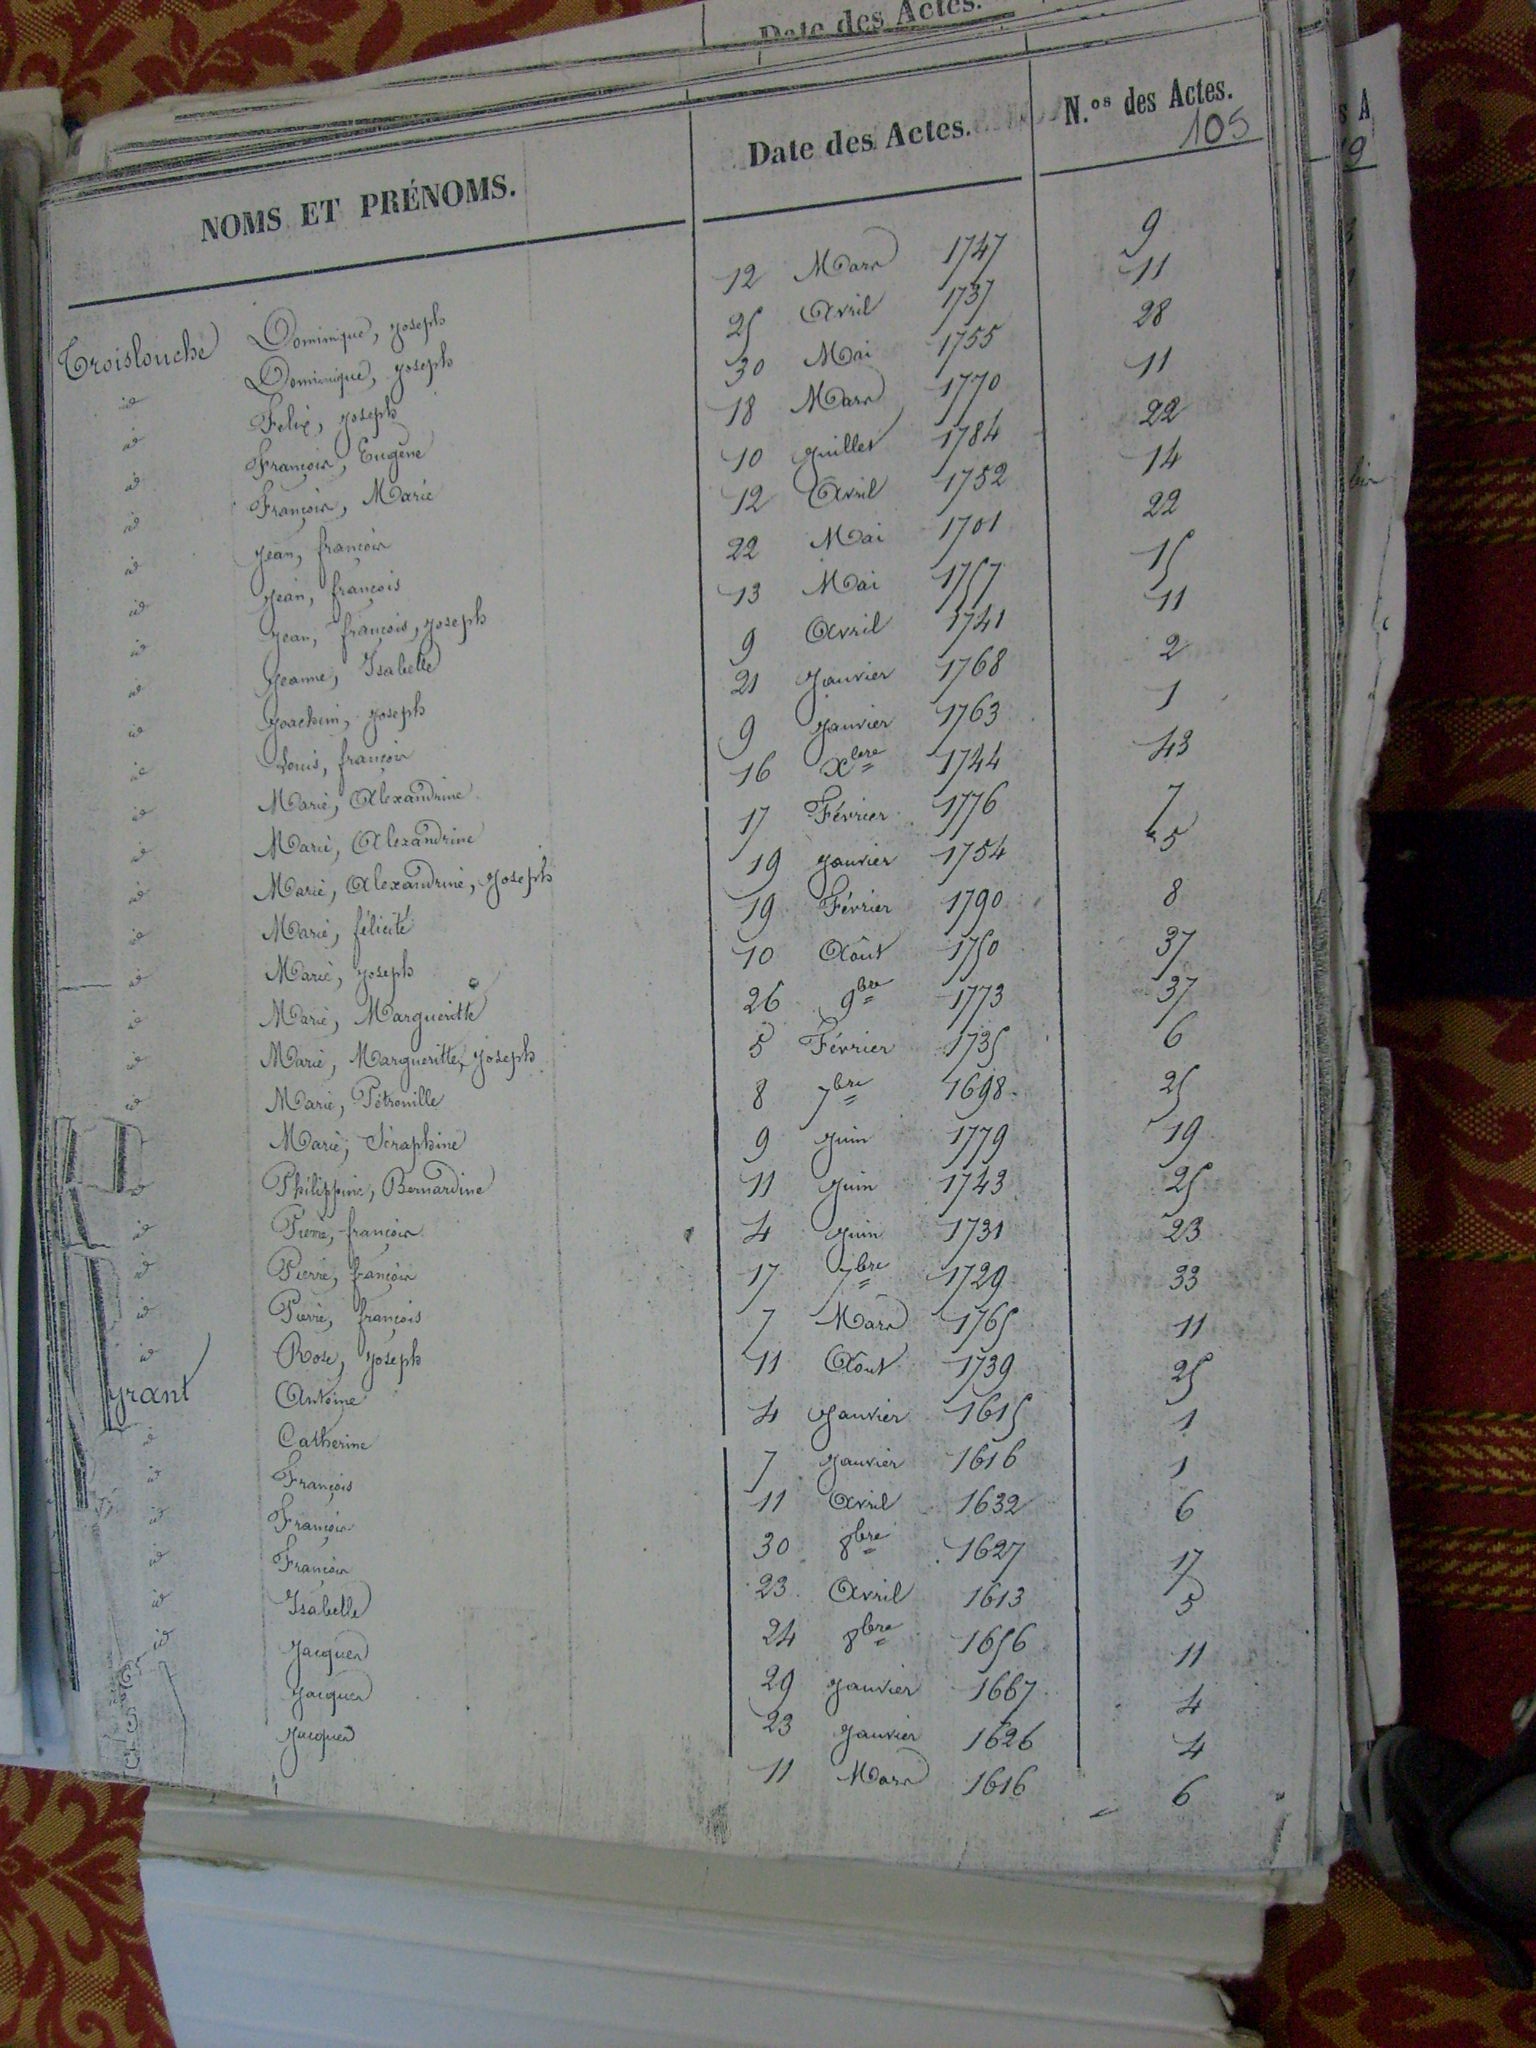 Date des Actes.
NOMS ET PRÉNOMS. Date des Actes. N.os des Actes.
105
Troislouche Dominique, Joseph 12 Mars 1747 9
id Dominique, Joseph 25 Avril 1737 11
id Felix, Joseph 30 Mai 1755 28
id François, Eugène 18 Mars 1770 11
id François, Marie 10 Juillet 1784 22
id Jean, françois 12 Avril 1752 14
id Jean, françois 22 Mai 1701 22
id Jean, françois, Joseph 13 Mai 1757 15
id Jeanne, Isabelle 9 Avril 1741 11
id Joachim, Joseph 21 Janvier 1768 2
id Louis, françois 9 Janvier 1763 1
id Marie, Alexandrine 16 Xbre 1744 43
id Marie, Alexandrine 17 Février 1776 7
id Marie, Alexandrine, Joseph 19 Janvier 1754 5
id Marie, félicité 19 Février 1790 8
id Marie, Joseph 10 Août 1750 37
id Marie, Margueritte 26 9bre 1773 37
id Marie, Margueritte, Joseph 5 Février 1735 6
id Marie, Pétronille 8 7bre 1698 25
id Marie, Séraphine 9 Juin 1779 19
id Philippine, Bernardine 11 Juin 1743 25
id Pierre, françois 4 Juin 1731 23
id Pierre, françois 17 7bre 1729 33
id Pierre, françois 7 Mars 1765 11
id Rose, Joseph 11 Aout 1739 25
Grant Antoine 4 Janvier 1615 1
id Catherine 7 Janvier 1616 1
id François 11 Avril 1632 6
id François 30 8bre 1627 17
id François 23 Avril 1613 5
id Isabelle 24 8bre 1656 11
id Jacques 29 Janvier 1667 4
Jacques 23 Janvier 1626 4
Jacques 11 Mars 1616 6